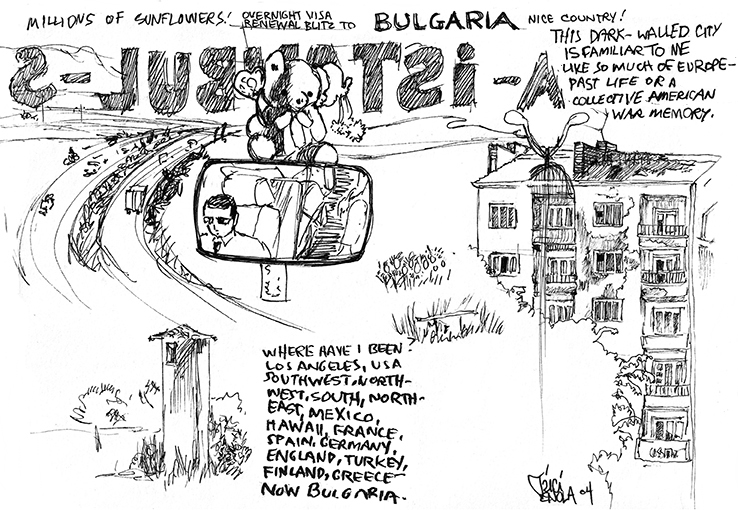 MILLIONS OF SUNFLOWERS!
OVERNIGHT VISA
RENEWAL BLITZ TO
BULGARIA
NICE COUNTRY!
THIS DARK-WALLED CITY
IS FAMILIAR TO ME
LIKE SO MUCH OF EUROPE-
PAST LIFE OR A
COLLECTIVE AMERICAN
WAR MEMORY.
A-iSTANBUL-S
WHERE HAVE I BEEN?
LOS ANGELES, USA
SOUTHWEST, NORTH-
WEST, SOUTH, NORTH-
EAST, MEXICO,
HAWAII, FRANCE,
SPAIN, GERMANY,
ENGLAND, TURKEY,
FINLAND, GREECE-
NOW BULGARIA.
VENOLA 04